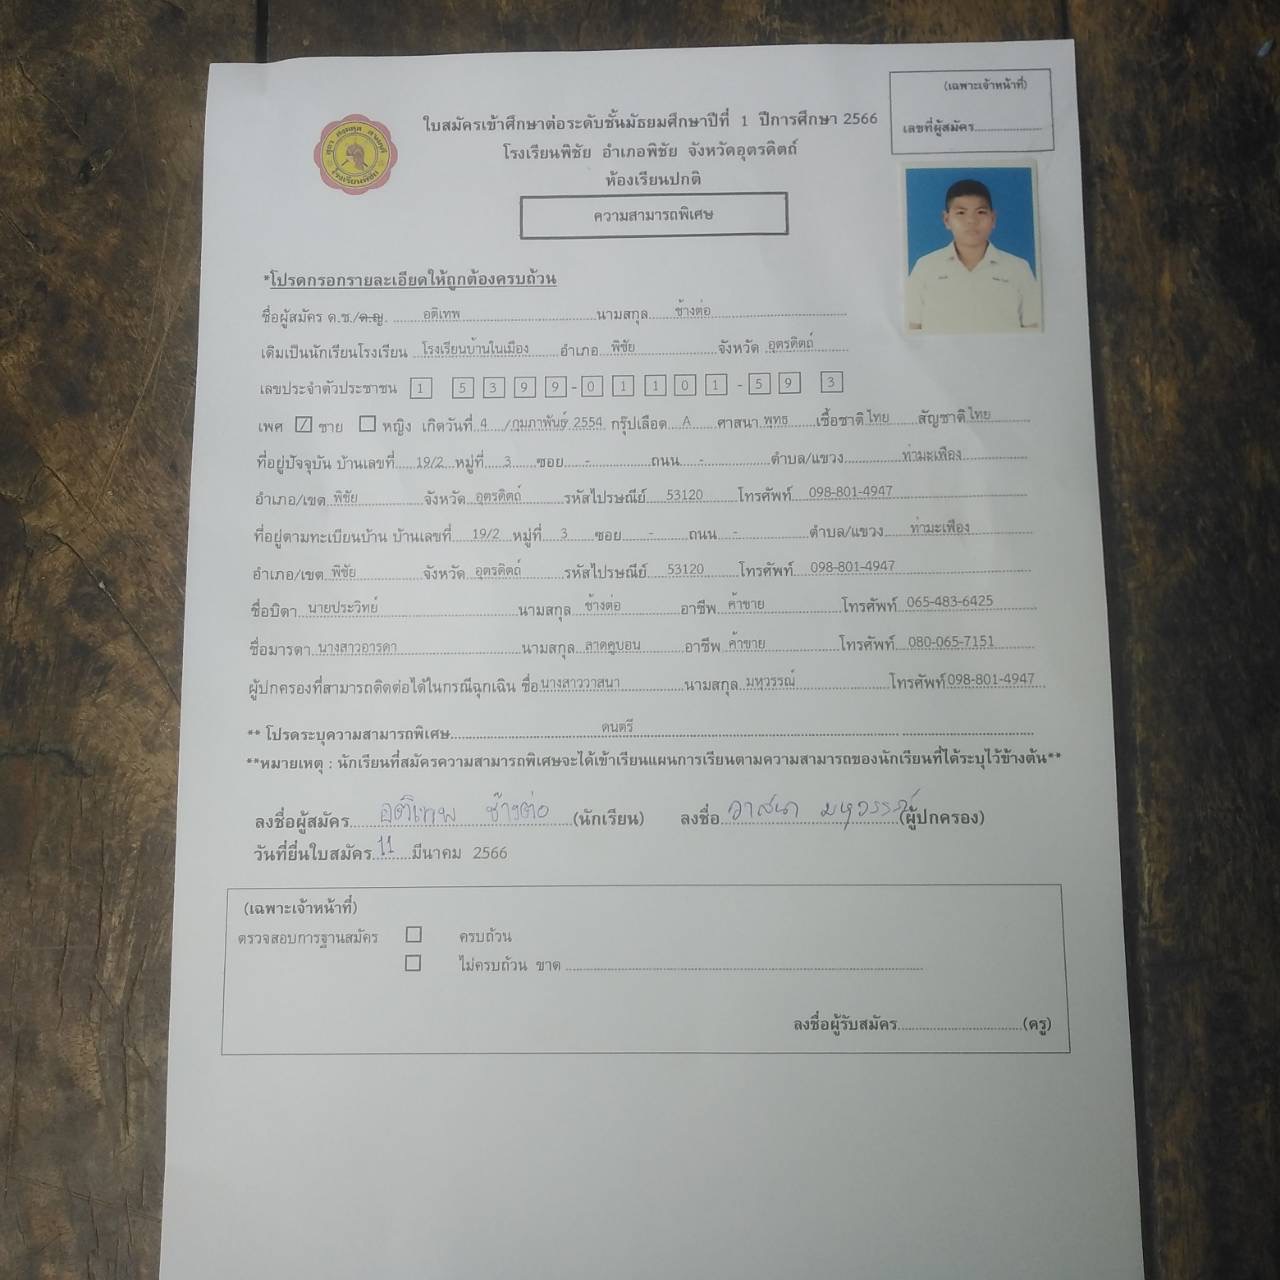 (เฉพาะเจ้าหน้าที่)
เลขที่ผู้สมัคร....................
ใบสมัครเข้าศึกษาต่อระดับชั้นมัธยมศึกษาปีที่ 1 ปีการศึกษา 2566
โรงเรียนพิชัย อำเภอพิชัย จังหวัดอุตรดิตถ์
ห้องเรียนปกติ
ความสามารถพิเศษ
*โปรดกรอกรายละเอียดให้ถูกต้องครบถ้วน
ชื่อผู้สมัคร ด.ช./ด.ญ. อติเทพ นามสกุล ช้างต่อ
เดิมเป็นนักเรียนโรงเรียน โรงเรียนบ้านในเมือง อำเภอ พิชัย จังหวัด อุตรดิตถ์
เลขประจำตัวประชาชน 1 5399-01101-59 3
เพศ ☑ ชาย ☐ หญิง เกิดวันที่ 4 /กุมภาพันธ์ 2554 กรุ๊ปเลือด A ศาสนา พุทธ เชื้อชาติ ไทย สัญชาติ ไทย
ที่อยู่ปัจจุบัน บ้านเลขที่ 19/2 หมู่ที่ 3 ซอย - ถนน - ตำบล/แขวง ท่ามะเฟือง
อำเภอ/เขต พิชัย จังหวัด อุตรดิตถ์ รหัสไปรษณีย์ 53120 โทรศัพท์ 098-801-4947
ที่อยู่ตามทะเบียนบ้าน บ้านเลขที่ 19/2 หมู่ที่ 3 ซอย - ถนน - ตำบล/แขวง ท่ามะเฟือง
อำเภอ/เขต พิชัย จังหวัด อุตรดิตถ์ รหัสไปรษณีย์ 53120 โทรศัพท์ 098-801-4947
ชื่อบิดา นายประวิทย์ นามสกุล ช้างต่อ อาชีพ ค้าขาย โทรศัพท์ 065-483-6425
ชื่อมารดา นางสาวอารดา นามสกุล ลาดคูบอน อาชีพ ค้าขาย โทรศัพท์ 080-065-7151
ผู้ปกครองที่สามารถติดต่อได้ในกรณีฉุกเฉิน ชื่อ นางสาววาสนา นามสกุล มหุวรรณ์ โทรศัพท์ 098-801-4947
** โปรดระบุความสามารถพิเศษ ดนตรี
**หมายเหตุ : นักเรียนที่สมัครความสามารถพิเศษจะได้เข้าเรียนแผนการเรียนตามความสามารถของนักเรียนที่ได้ระบุไว้ข้างต้น**
ลงชื่อผู้สมัคร อติเทพ ช้างต่อ (นักเรียน) ลงชื่อ วาสนา มหุวรรณ์ (ผู้ปกครอง)
วันที่ยื่นใบสมัคร 11 มีนาคม 2566
(เฉพาะเจ้าหน้าที่)
ตรวจสอบการฐานสมัคร ☐ ครบถ้วน
☐ ไม่ครบถ้วน ขาด
ลงชื่อผู้รับสมัคร (ครู)